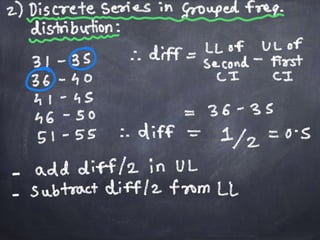 2) Discrete Series in Grouped freq.
distribution:
31 - 35
36 - 40
41 - 45
46 - 50
51 - 55
∴ diff = LL of second CI - UL of first CI
= 36 - 35
∴ diff = 1/2 = 0.5
- add diff/2 in UL
- Subtract diff/2 from LL